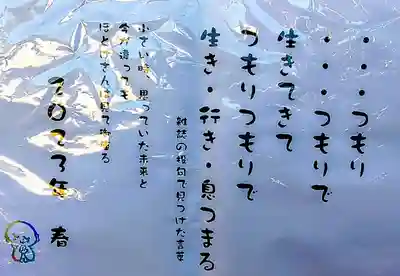 ・・・つもり
・・・つもりで
生きてきて
つもりつもりで
生き・行き・息つまる
雑誌の投句で見つけた言葉
小さい時、思っていた未来と
今が違っても
ほとけさんは見て御座る
2023年 春